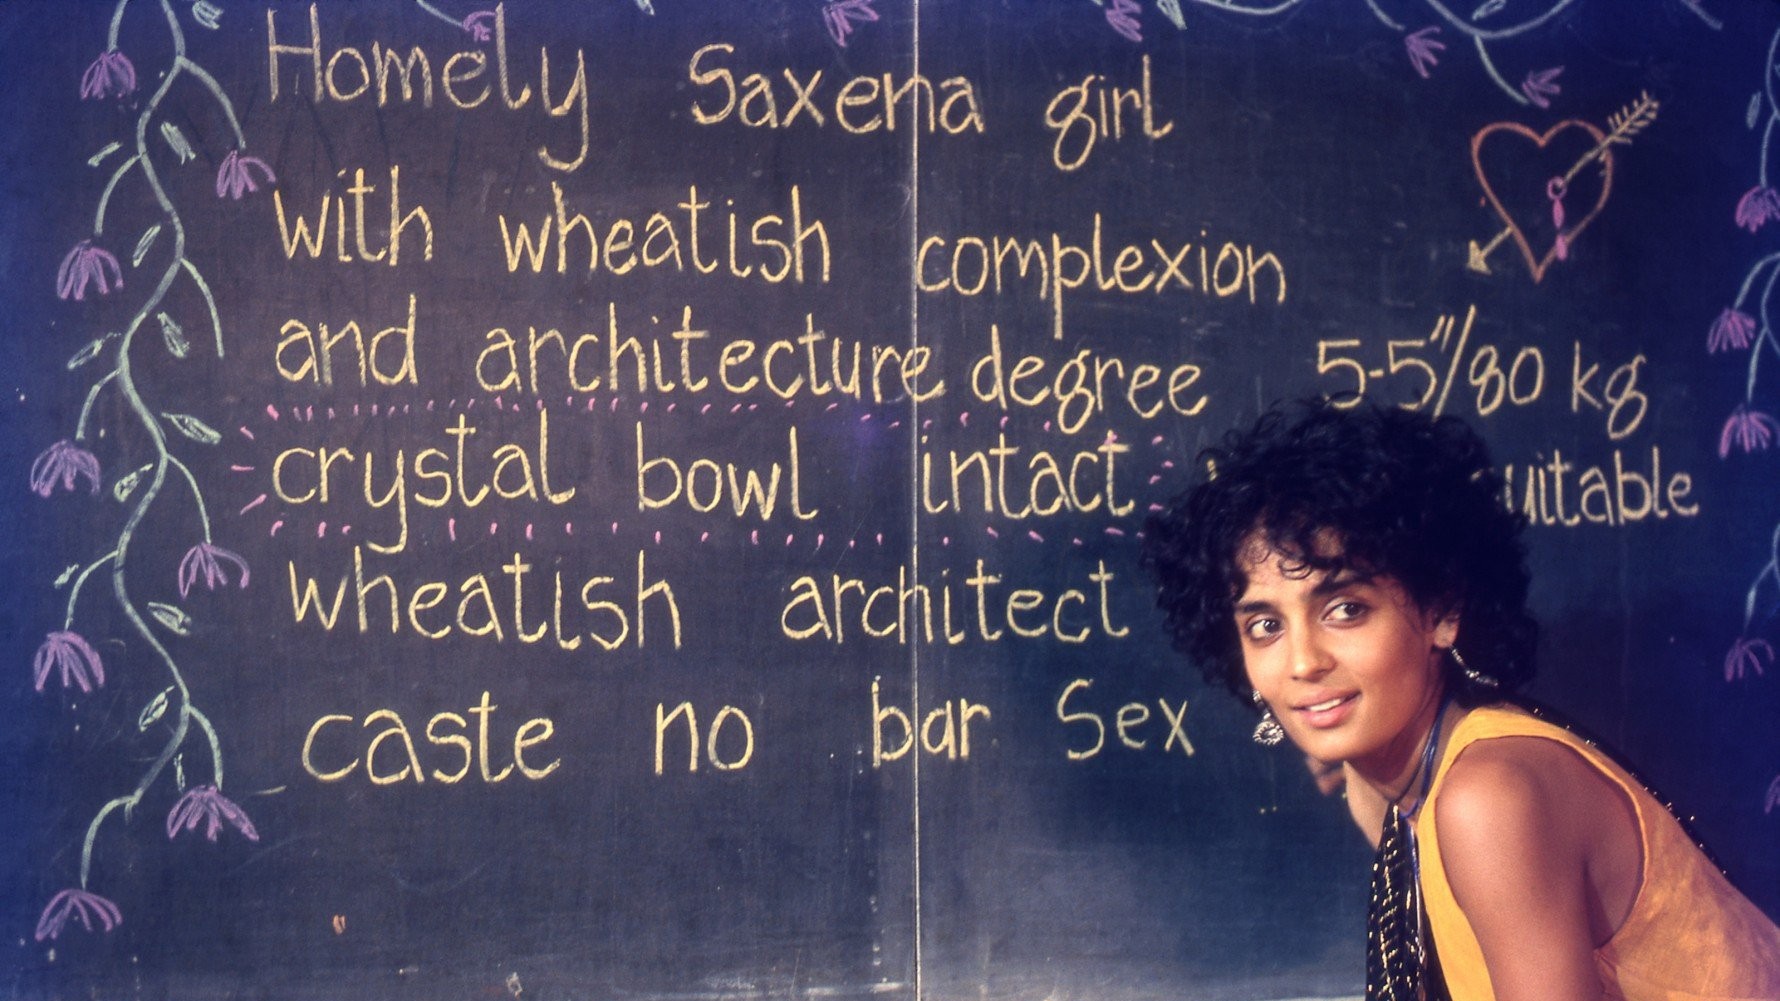 Homely Saxena girl
with wheatish complexion
and architecture degree 5-5"/80 kg
crystal bowl intact
wheatish architect
caste no bar Sex